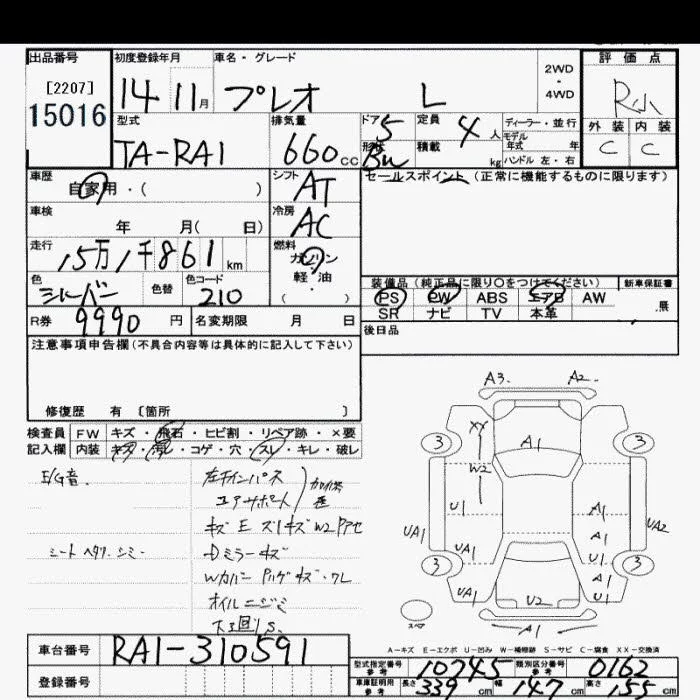 出品番号 初度登録年月 車名・グレード 評価点
[2207]
15016
14 11月 プレオ L
2WD
・
4WD
型式 排気量 ドア 定員 ディーラー・並行
外装 内装
TA-RA1 660 cc 5 4人
モデル
年式 年
形状 積載 kg ハンドル 左・右
C C
車歴 シフト セールスポイント(正常に機能するものに限ります)
自家用・( ) AT
車検 冷房
年 月( 日) AC
走行 燃料
15万1千861 km ガソリン
軽・油
( )
色 色替 色コード
シルバー 210
装備品(純正品に限り○をつけてください) 新車保証書
PS PW ABS エアB AW
SR ナビ TV 本革
R券 9990 円 名変期限 月 日
後日品
注意事項申告欄(不具合内容等は具体的に記入して下さい)
修復歴 有 〔箇所 〕
検査員 FW キズ・飛石・ヒビ割・リペア跡・×要
記入欄 内装 キズ・汚レ・コゲ・穴・スレ・キレ・破レ
E/G音
左テインパネ
コアサポート
シート ヘタリ シミ
Dミラーキズ
オイルニジミ
A3. A2.
3 XX A1 3
W2
U1 A1
UA1 UA1 A1 UA2
U1
3 A1 3
UA1 U2 U1
スペア A1
A-キズ E-エクボ U-凹み W-補修跡 S-サビ C-腐食 XX-交換済
車台番号 RA1-310591
登録番号
型式指定番号 参考 10745 類別区分番号 参考 0162
車庫証明用 参考 長さ 339 cm 幅 147 cm 高さ 155 cm